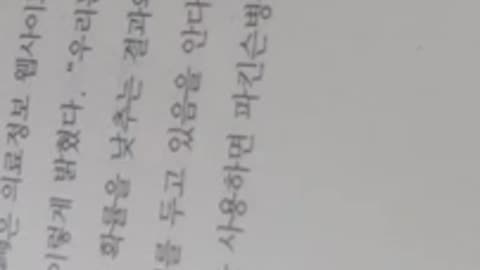 은 의료정보 웹사이
이렇게 밝혔다. “우리
확률을 낮추는 결과
를 두고 있음을 안다
사용하면 파킨슨병